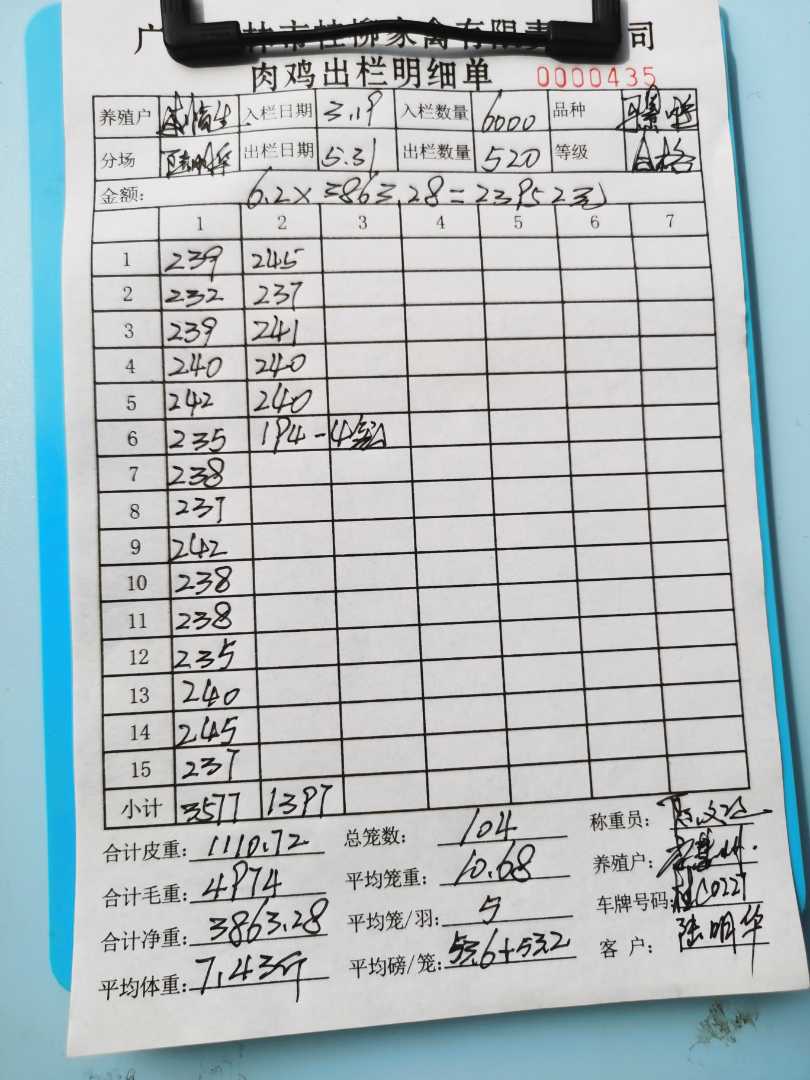 广 林市桂柳家禽有限责 司
肉鸡出栏明细单 0000435
养殖户 入栏日期 3.19 入栏数量 6000 品种
分场 陆明华 出栏日期 5.31 出栏数量 520 等级 合格
金额: 6.2×3863.28=23952元
1 2 3 4 5 6 7
1 239 245
2 232 237
3 239 241
4 240 240
5 242 240
6 235 194-4
7 238
8 237
9 242
10 238
11 238
12 235
13 240
14 245
15 237
小计 3577 1397
合计皮重: 1110.72 总笼数: 104 称重员:
合计毛重: 4974 平均笼重: 10.68 养殖户:
合计净重: 3863.28 平均笼/羽: 5 车牌号码: 桂C0227
平均体重: 7.43斤 平均磅/笼: 53.6+53.2 客户: 陆明华